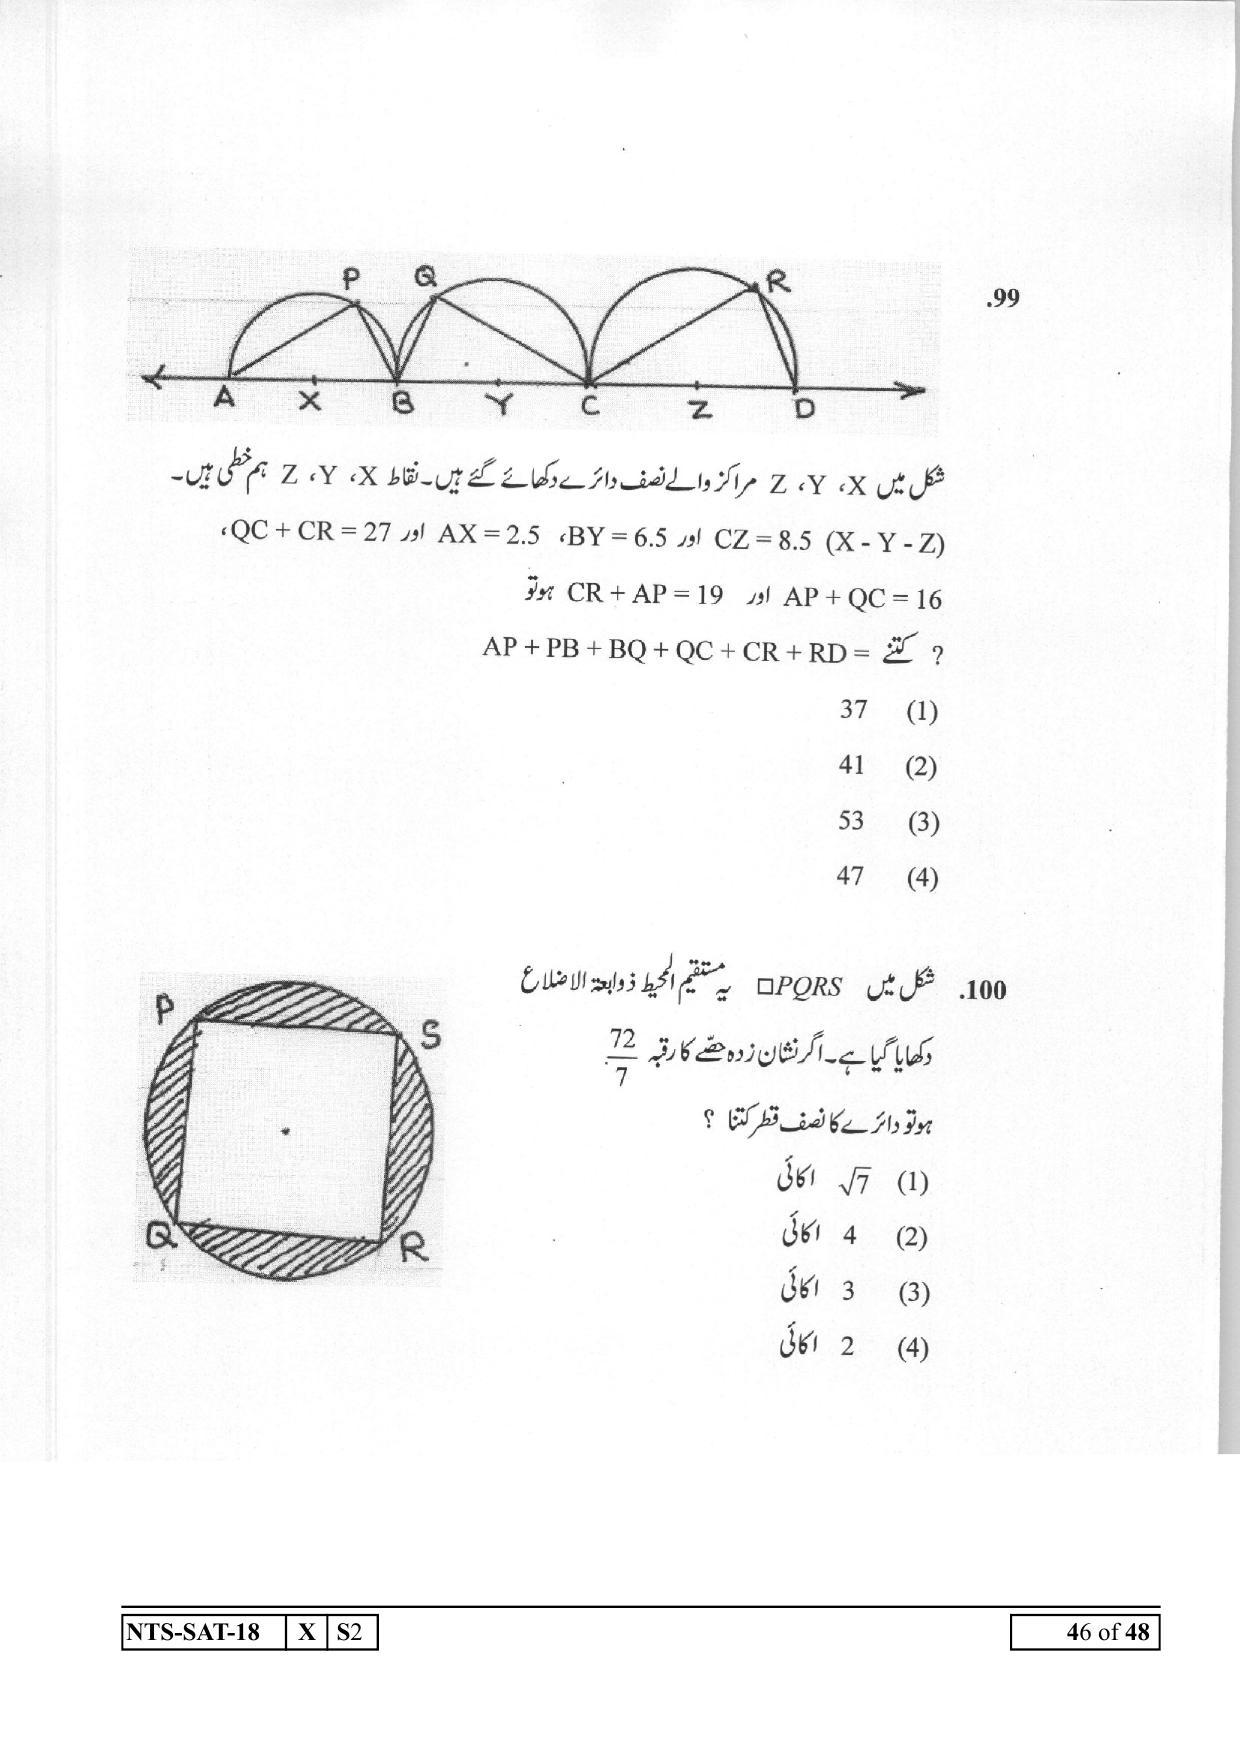 P Q R
A X B Y C Z D
.99
شکل میں Z ،Y ،X مراکز والے نصف دائرے دکھائے گئے ہیں۔ نقاط Z ،Y ،X ہم خطی ہیں۔
(X - Y - Z) CZ = 8.5 اور BY = 6.5، AX = 2.5 اور QC + CR = 27،
AP + QC = 16 اور CR + AP = 19 ہوتو
AP + PB + BQ + QC + CR + RD = کتنے ?
(1) 37
(2) 41
(3) 53
(4) 47
.100 شکل میں □PQRS یہ مستقیم المحیط ذواربعۃ الاضلاع
دکھایا گیا ہے۔ اگر نشان زدہ حصّے کا رقبہ 72/7
ہوتو دائرے کا نصف قطر کتنا ؟
(1) √7 اکائی
(2) 4 اکائی
(3) 3 اکائی
(4) 2 اکائی
P S
Q R
NTS-SAT-18 X S2 46 of 48